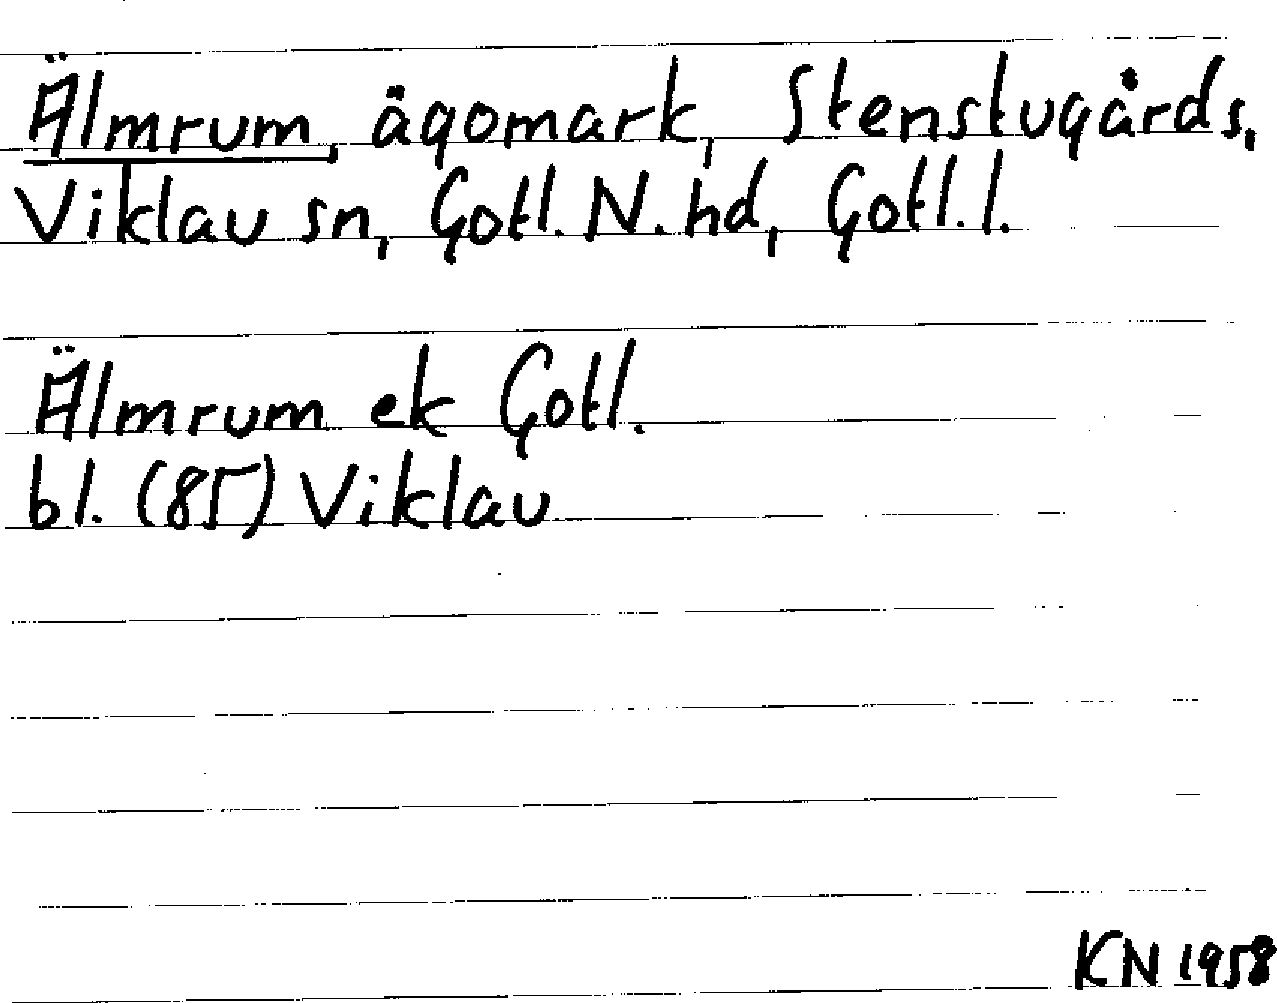 Älmrum, ägomark, Stenstugårds,
Viklau sn, Gotl. N. hd, Gotl. l.
Älmrum ek Gotl.
bl. (85) Viklau
KN 1958